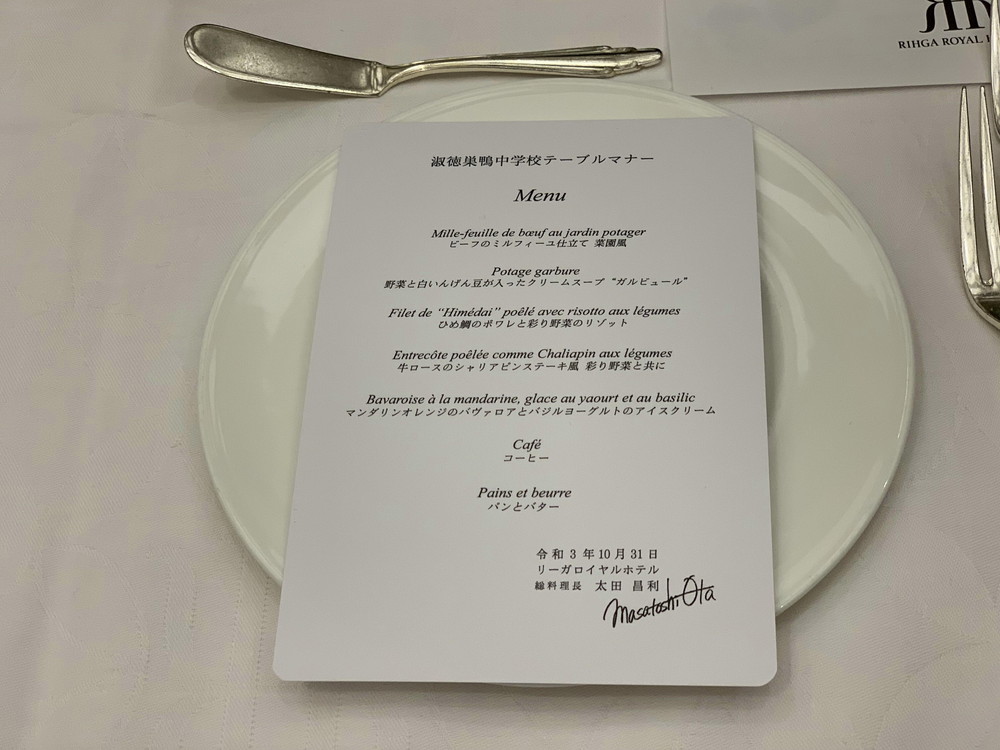 RIHGA ROYAL
淑徳巣鴨中学校テーブルマナー
Menu
Mille-feuille de bœuf au jardin potager
ビーフのミルフィーユ仕立て 菜園風
Potage garbure
野菜と白いんげん豆が入ったクリームスープ “ガルビュール”
Filet de “Himédai” poêlé avec risotto aux légumes
ひめ鯛のポワレと彩り野菜のリゾット
Entrecôte poêlée comme Chaliapin aux légumes
牛ロースのシャリアピンステーキ風 彩り野菜と共に
Bavaroise à la mandarine, glace au yaourt et au basilic
マンダリンオレンジのバヴァロアとバジルヨーグルトのアイスクリーム
Café
コーヒー
Pains et beurre
パンとバター
令和 3 年10月31日
リーガロイヤルホテル
総料理長 太田 昌利
Masatoshi Ota